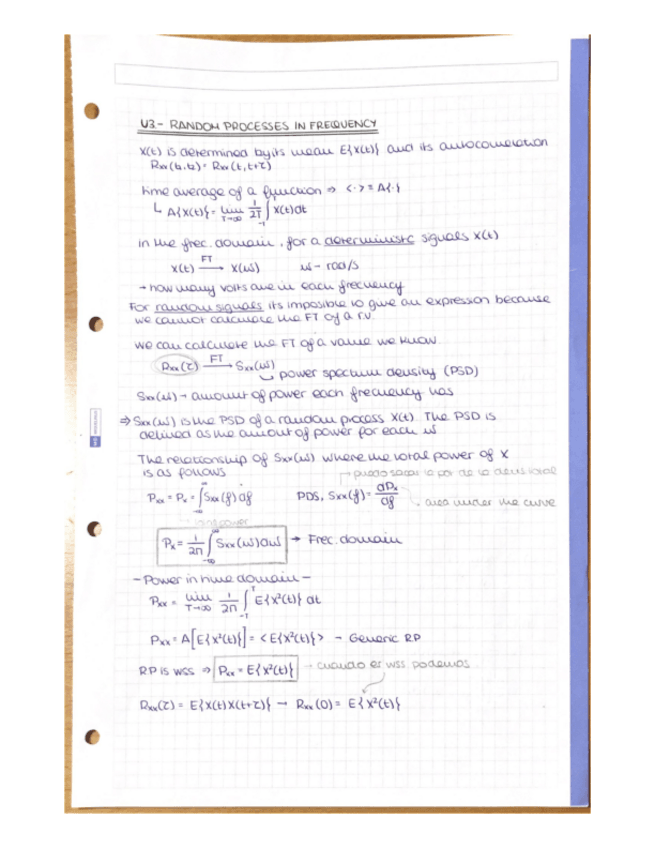 U3.- RANDOM PROCESSES IN FREQUENCY
X(t) is determined by its mean E{X(t)} and its autocorrelation
Rxx(t1,t2) = Rxx(t, t+τ)
time average of a function ⇒ <·> = A{·}
↳ A{X(t)} = lim T→∞ 1/2T ∫ X(t)dt
in the frec. domain, for a deterministic signals X(t)
X(t) FT→ X(ω) ω - rad/s
→ how many volts are in each frecuency
For random signals its imposible to give an expression because
we cannot calculate the FT of a r.v.
we can calculate the FT of a value we know
Rxx(τ) FT→ Sxx(ω)
↳ power spectrum density (PSD)
Sxx(ω) → amount of power each frecuency has
⇒ Sxx(ω) is the PSD of a random process X(t). The PSD is
defined as the amount of power for each ω
The relationship of Sxx(ω) where the total power of X
is as follows
Pxx = Px = ∫ Sxx(f) df PDS, Sxx(f) = dPx/df area under the curve
Px = 1/2π ∫ Sxx(ω)dω → Frec. domain
- Power in time domain -
Pxx = lim T→∞ 1/2π ∫ E{X²(t)} dt
Pxx = A[E{X²(t)}] = <E{X²(t)}> - Generic RP
RP is WSS ⇒ Pxx = E{X²(t)} → cuando es wss podemos
Rxx(τ) = E{X(t)X(t+τ)} → Rxx(0) = E{X²(t)}